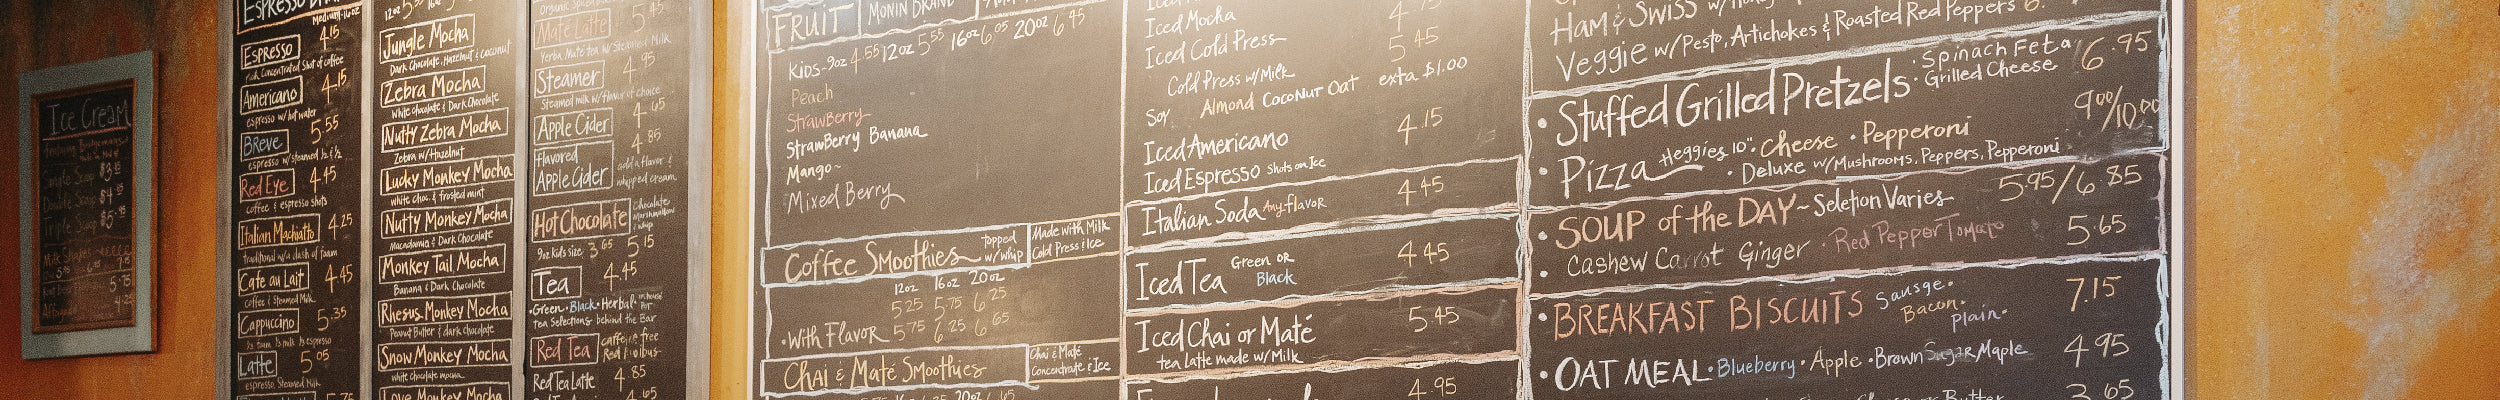 Ice Cream
Single Scoop
Double Scoop $4
Triple Scoop $5
Milk Shakes
ESPRESSO
Medium-16oz
ESPRESSO 4.15
rich Concentrated Shot of coffee
Americano 4.15
espresso w/hot water
BREVE 5.55
espresso w/steamed ½ & ½
Red Eye 4.45
coffee & espresso shots
Italian Machiatto 4.25
traditional w/a dash of foam
Cafe au Lait 4.45
coffee & Steamed Milk
Cappuccino 5.35
½ foam ½ milk ½ espresso
Latte 5.05
espresso, Steamed Milk
Jungle Mocha
Dark Chocolate, Hazelnut & coconut
Zebra Mocha
White Chocolate & Dark Chocolate
Nutty Zebra Mocha
Zebra w/Hazelnut
Lucky Monkey Mocha
white choc. & frosted mint
Nutty Monkey Mocha
Macadamia & Dark Chocolate
Monkey Tail Mocha
Banana & Dark Chocolate
Rhesus Monkey Mocha
Peanut Butter & dark chocolate
Snow Monkey Mocha
white chocolate mocha
Love Monkey Mocha
Maté Latte 5.45
Yerba Maté tea w/Steamed Milk
Steamer 4.95
Steamed milk w/flavor of choice
Apple Cider 4.65
flavored Apple Cider 4.85
add a flavor & whipped cream
Hot Chocolate
Chocolate Marshmallow & whip
9oz kids size 3.65 5.15
Tea 4.45
•Green•Black•Herbal•
Tea Selections behind the Bar
Red Tea
caffeine free
Red Tea Latte 4.85
FRUIT MONIN BRAND
Kids-9oz 4.55 12oz 5.55 16oz 6.05 20oz 6.45
Peach
Strawberry
Strawberry Banana
Mango~
Mixed Berry
Coffee Smoothies topped w/whip
Made with Milk Cold Press & Ice
12oz 16oz 20oz
5.25 5.75 6.25
•With Flavor 5.75 6.25 6.65
Chai & Maté Smoothies
Chai & Maté Concentrate & Ice
Iced Mocha
Iced Cold Press 5.45
Cold Press w/Milk
Soy Almond Coconut Oat exta $1.00
Iced Americano 4.15
Iced Espresso Shots on Ice
Italian Soda Any-flavor 4.45
Iced Tea Green or Black 4.45
Iced Chai or Maté 5.45
tea latte made w/Milk
4.95
Ham & Swiss
Veggie w/Pesto, Artichokes & Roasted Red Peppers
•Stuffed Grilled Pretzels •Spinach Feta •Grilled Cheese 6.95
•Pizza Heggies 10" •Cheese •Pepperoni 9.00/10.00
•Deluxe w/Mushrooms, Peppers, Pepperoni
•SOUP of the DAY~Seletion Varies 5.95/6.85
•Cashew Carrot Ginger •Red Pepper Tomato 5.65
•BREAKFAST BISCUITS Sausge• Bacon• Plain• 7.15
•OAT MEAL•Blueberry•Apple•Brown Sugar Maple 4.95
3.65